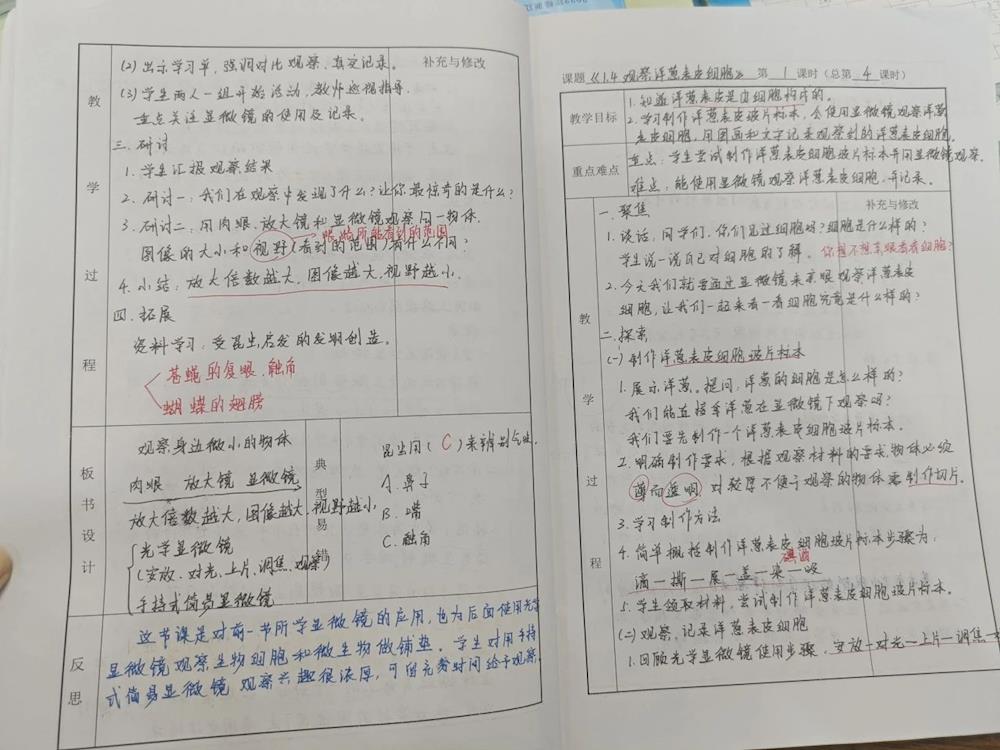 教学过程
补充与修改
(2) 出示学习单，强调对比观察，真实记录。
(3) 学生两人一组开始活动，教师巡视指导，
重点关注显微镜的使用及记录。
三. 研讨
1. 学生汇报观察结果
2. 研讨一：我们在观察中发现了什么？让你最惊奇的是什么？
3. 研讨二：用肉眼、放大镜和显微镜观察同一物体，
眼睛所能看到的范围
图像的大小和视野(看到的范围)有什么不同？
4. 小结：放大倍数越大，图像越大，视野越小。
四. 拓展
资料学习：受昆虫启发的发明创造。
苍蝇的复眼、触角
蝴蝶的翅膀
板书设计
观察身边微小的物体
肉眼 放大镜 显微镜
放大倍数越大，图像越大，视野越小
光学显微镜
(安放、对光、上片、调焦、观察)
手持式简易显微镜
典型易错
昆虫用( C )来辨别气味.
A. 鼻子
B. 嘴
C. 触角
反思
这节课是对前一节所学显微镜的应用，也为后面使用光学
显微镜观察生物细胞和微生物做铺垫。学生对用手持
式简易显微镜观察兴趣很浓厚，可留充券时间给予观察.
课题《1.4 观察洋葱表皮细胞》 第 1 课时(总第 4 课时)
教学目标
1. 知道洋葱表皮是由细胞构成的。
2. 学习制作洋葱表皮玻片标本，会使用显微镜观察洋葱
表皮细胞，用图画和文字记录观察到的洋葱表皮细胞。
重点难点
重点：学生尝试制作洋葱表皮细胞玻片标本并用显微镜观察.
难点：能使用显微镜观察洋葱表皮细胞，并记录。
教学过程
补充与修改
一. 聚焦
1. 谈话：同学们，你们见过细胞吗？细胞是什么样的？
学生说一说自己对细胞的了解。你想不想亲眼看看细胞？
2. 今天我们就要通过显微镜来亲眼观察洋葱表皮
细胞，让我们一起来看一看细胞究竟是什么样的？
二. 探索
(一) 制作洋葱表皮细胞玻片标本
1. 展示洋葱。提问：洋葱的细胞是怎么样的？
我们能直接拿洋葱在显微镜下观察吗？
我们要先制作一个洋葱表皮玻片标本。
2. 明确制作要求，根据观察材料的要求，物体必须
薄而透明，对较厚不便于观察的物体要制作切片.
3. 学习制作方法
4. 简单概括制作洋葱表皮细胞玻片标本步骤为：
滴一撕一展一盖一染一吸
5. 学生领取材料，尝试制作洋葱表皮细胞玻片标本.
(二) 观察、记录洋葱表皮细胞
1. 回顾光学显微镜使用步骤，安放一对光一上片一调焦一